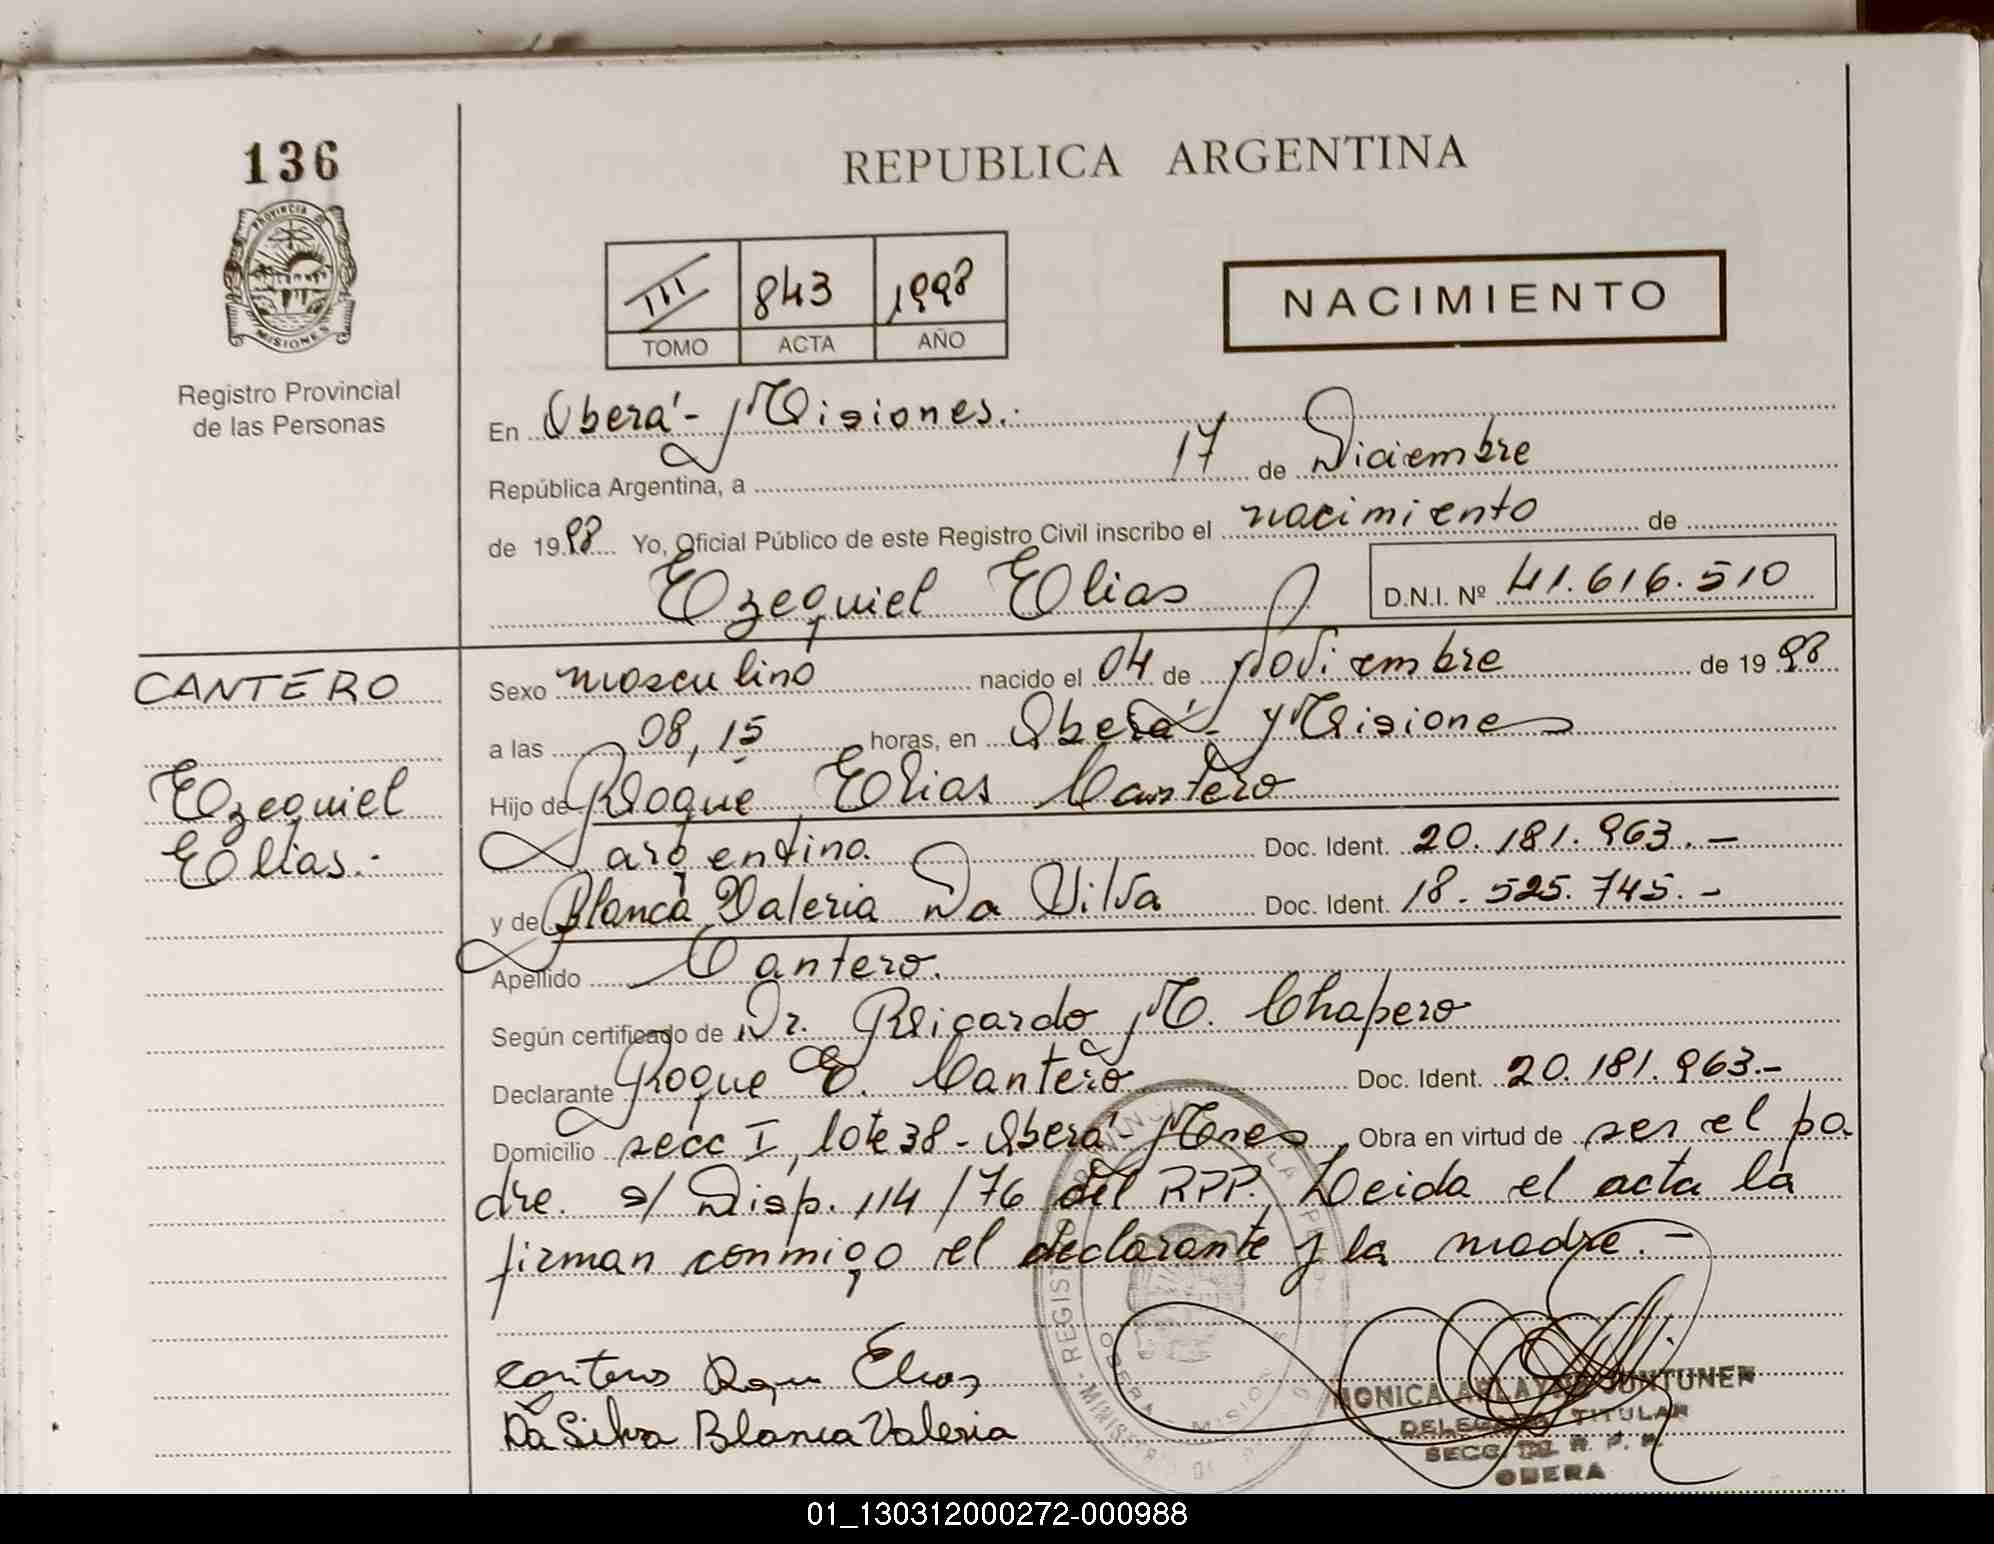 136
REPUBLICA ARGENTINA
PROVINCIA DE
MISIONES
Registro Provincial
de las Personas
III 843 1998
TOMO ACTA AÑO
NACIMIENTO
En Oberá - Misiones.
República Argentina, a 17 de Diciembre
de 1998 Yo, Oficial Público de este Registro Civil inscribo el nacimiento de
Ezequiel Elias D.N.I. Nº 41.616.510
CANTERO
Ezequiel
Elias.
Sexo masculino nacido el 04 de Noviembre de 1998
a las 08,15 horas, en Oberá - Misiones
Hijo de Roque Elias Cantero
argentino. Doc. Ident. 20.181.963.-
y de Blanca Valeria Da Silva Doc. Ident. 18.525.745.-
Apellido Cantero.
Según certificado de Dr. Ricardo M. Chapero
Declarante Roque E. Cantero Doc. Ident. 20.181.963.-
Domicilio secc I, lote 38 - Oberá - Mnes Obra en virtud de ser el pa
dre. s/ Disp. 114/76 del RPP. Leida el acta la
firman conmigo el declarante y la madre.-
Cantero Roque Elias
Da Silva Blanca Valeria
MONICA
DELEGADO TITULAR
SECC. DEL R. P. P.
OBERA
01_130312000272-000988